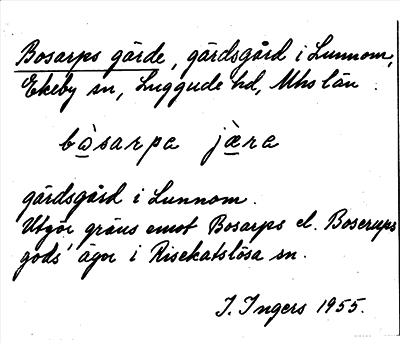 Bosarps gärde, gärdsgård i Lunnom,
Ekeby sn, Luggude hd, Mhs län.
bò̲sarpa jæ̲̀ra
gärdsgård i Lunnom.
Utgör gräns emot Bosarps el. Boserups
gods' ägor i Risekatslösa sn.
I. Ingers 1955.